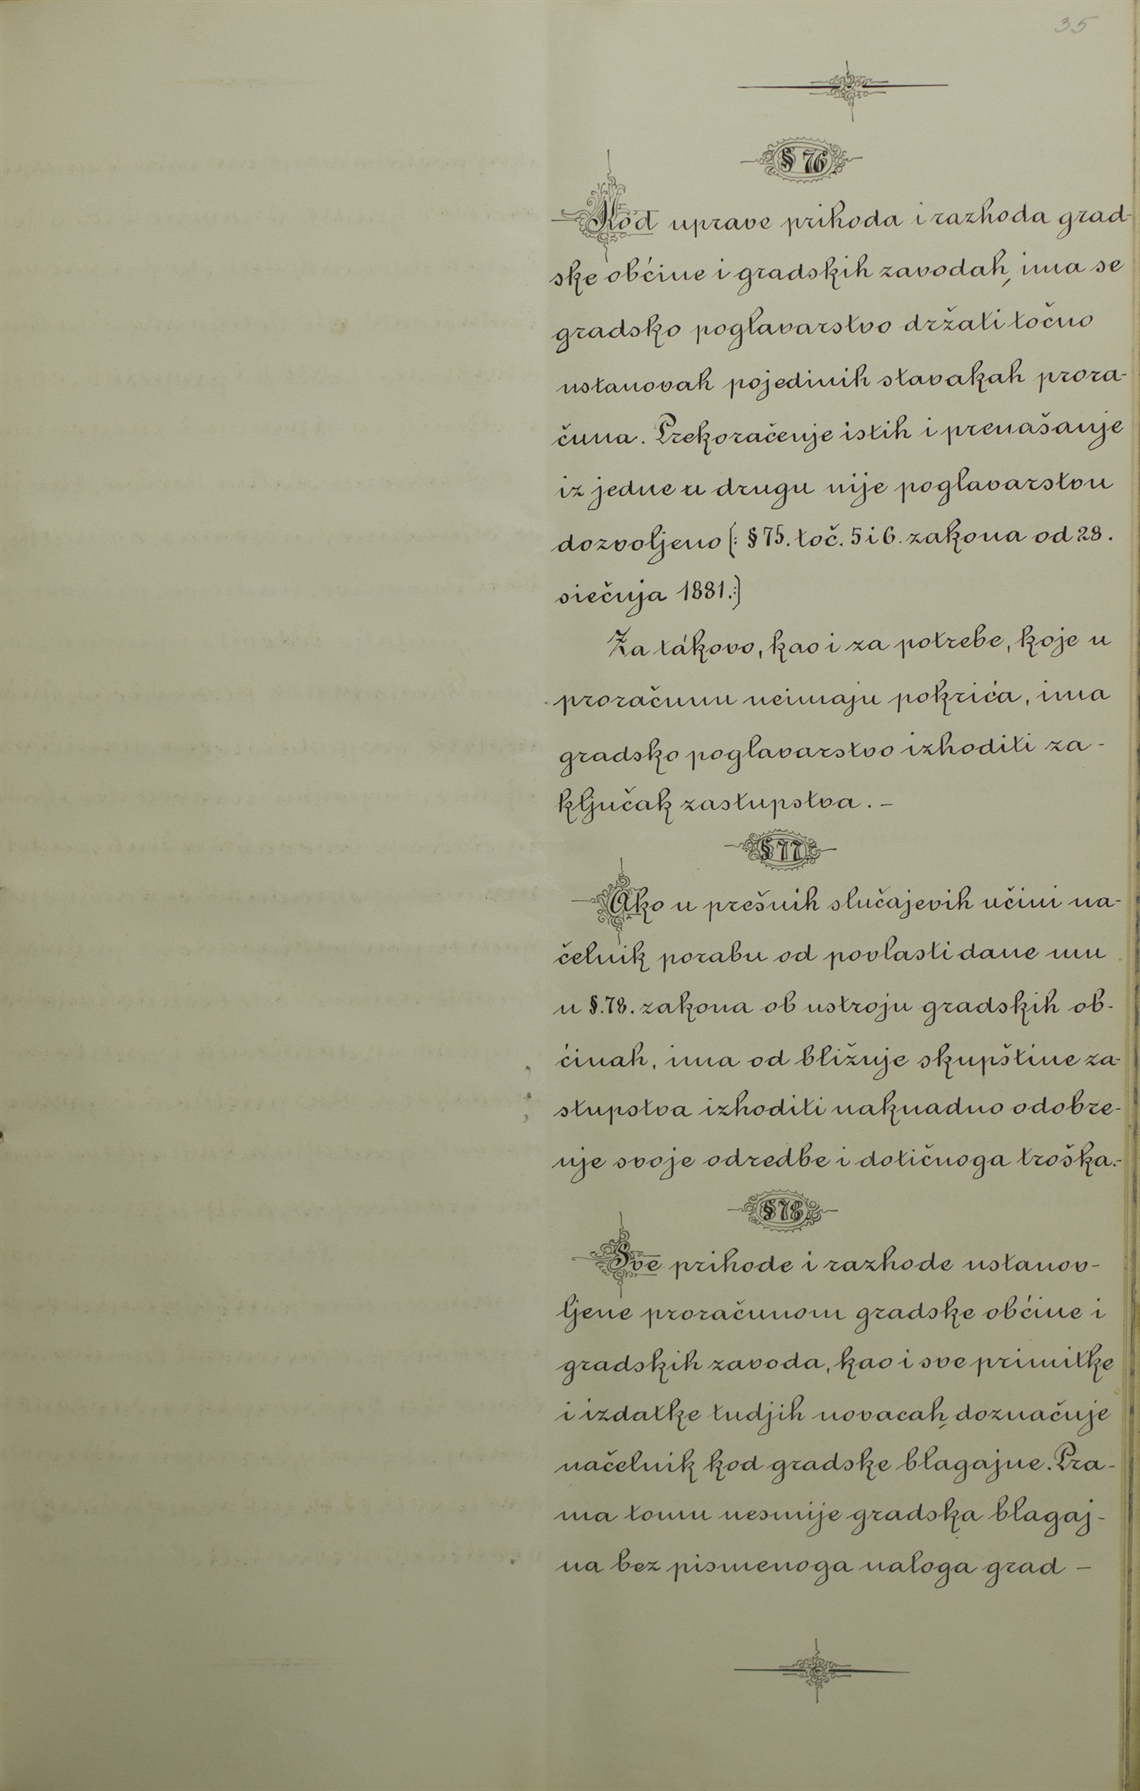 35
§ 76
Kod uprave prihoda i razhoda grad-
ske obćine i gradskih zavodah, ima se
gradsko poglavarstvo držati točno
ustanovah pojedinih stavakah prora-
čuna. Prekoračenje istih i prenašanje
iz jedne u drugu nije poglavarstvu
dozvoljeno (: § 75. toč. 5 i 6. zakona od 28.
siečnja 1881.:)
Za takovo, kao i za potrebe, koje u
proračunu neimaju pokrića, ima
gradsko poglavarstvo izhoditi za-
ključak zastupstva. –
§ 77
Ako u prešnih slučajevih učini na-
čelnik porabu od povlasti dane mu
u §. 78. zakona ob ustroju gradskih ob-
ćinah, ima od bližnje skupštine za-
stupstva izhoditi naknadno odobre-
nje svoje odredbe i dotičnoga troška.–
§ 78
Sve prihode i razhode ustanov-
ljene proračunom gradske obćine i
gradskih zavoda, kao i sve primitke
i izdatke tudjih novacah, doznačuje
načelnik kod gradske blagajne. Pra-
ma tomu nesmije gradska blagaj-
na bez pismenoga naloga grad –